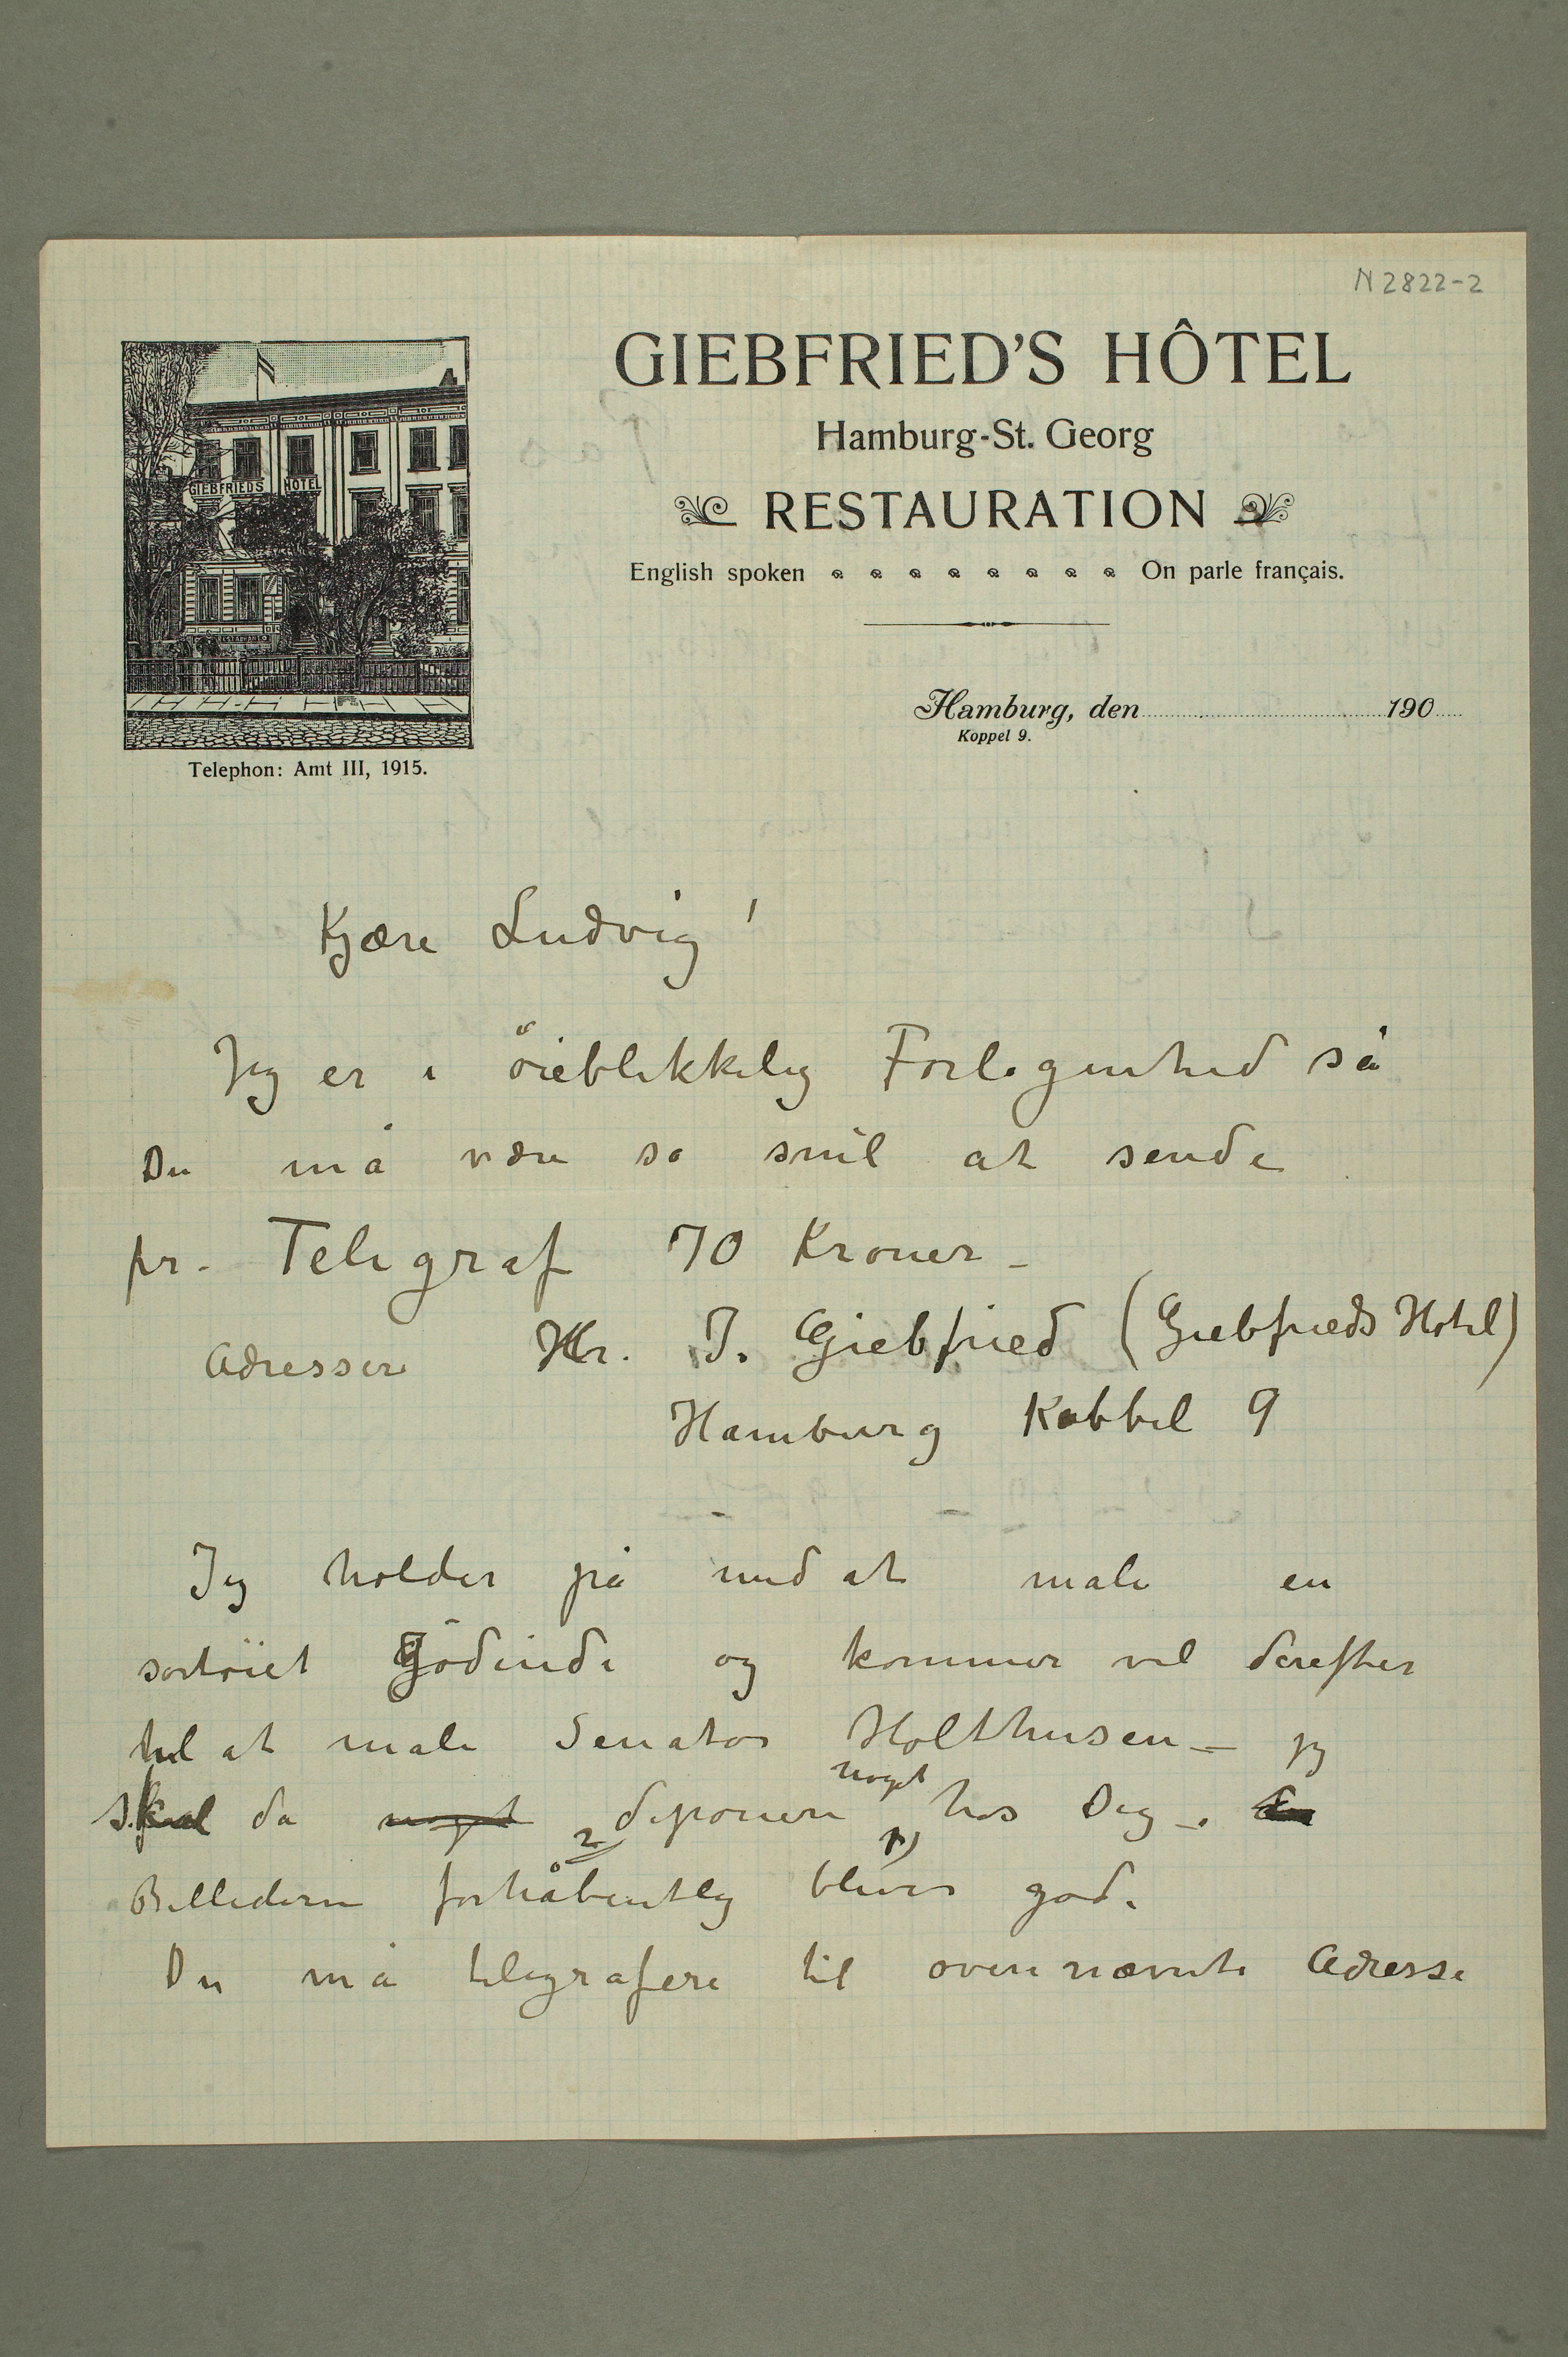 N 2822-2
GIEBFRIED'S HÔTEL
Hamburg-St. Georg
RESTAURATION
English spoken On parle français.
GIEBFRIEDS HOTEL
Hamburg, den 190
Koppel 9.
Telephon: Amt III, 1915.
Kjære Ludvig!
Jeg er i öieblikkelig Forlegenhed så
Du må være så snil at sende
pr. Telegraf 70 Kroner –
Adressere Hr. J. Giebfried (Giebfrieds Hotel)
Hamburg Kobbel 9
Jeg holder på med at male en
sortöiet Jödinde og kommer vel derefter
til at male Senator Holthusen – jg
skal da noget deponere noget hos Dig –.
Billederne forhåbentlig 2 bliver 1) gode
Du må telegrafere til ovennævnte Adresse